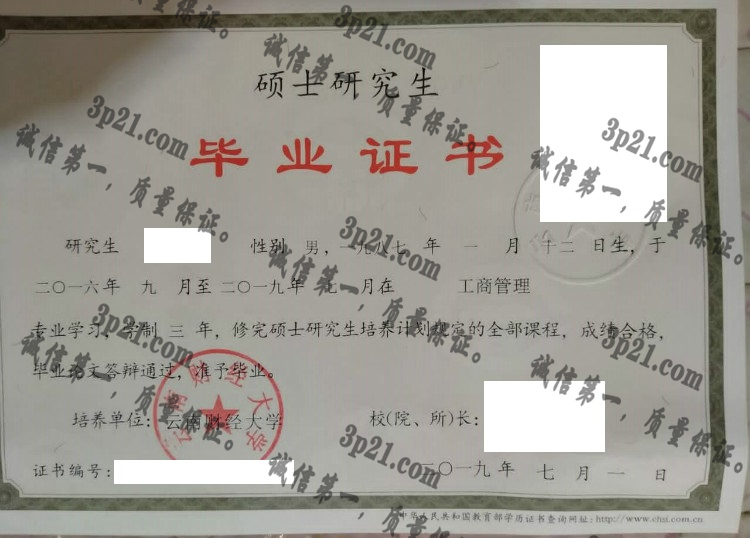 硕士研究生
毕业证书
研究生 性别 男，一九八七 年 一 月 十二 日生，于
二〇一六年 九 月至二〇一九年 七 月在 工商管理
专业学习，学制 三 年，修完硕士研究生培养计划规定的全部课程，成绩合格，
毕业论文答辩通过，准予毕业。
云南财经大学
培养单位：云南财经大学 校(院、所)长：
证书编号：
二〇一九年 七 月 一 日
中华人民共和国教育部学历证书查询网址：http://www.chsi.com.cn
3p21.com
诚信第一，质量保证。
3p21.com
诚信第一，质量保证。
3p21.com
诚信第一，质量保证。
3p21.com
诚信第一，质量保证。
3p21.com
诚信第一，质量保证。
3p21.com
诚信第一，质量保证。
3p21.com
诚信第一，质量保证。
质量保证。